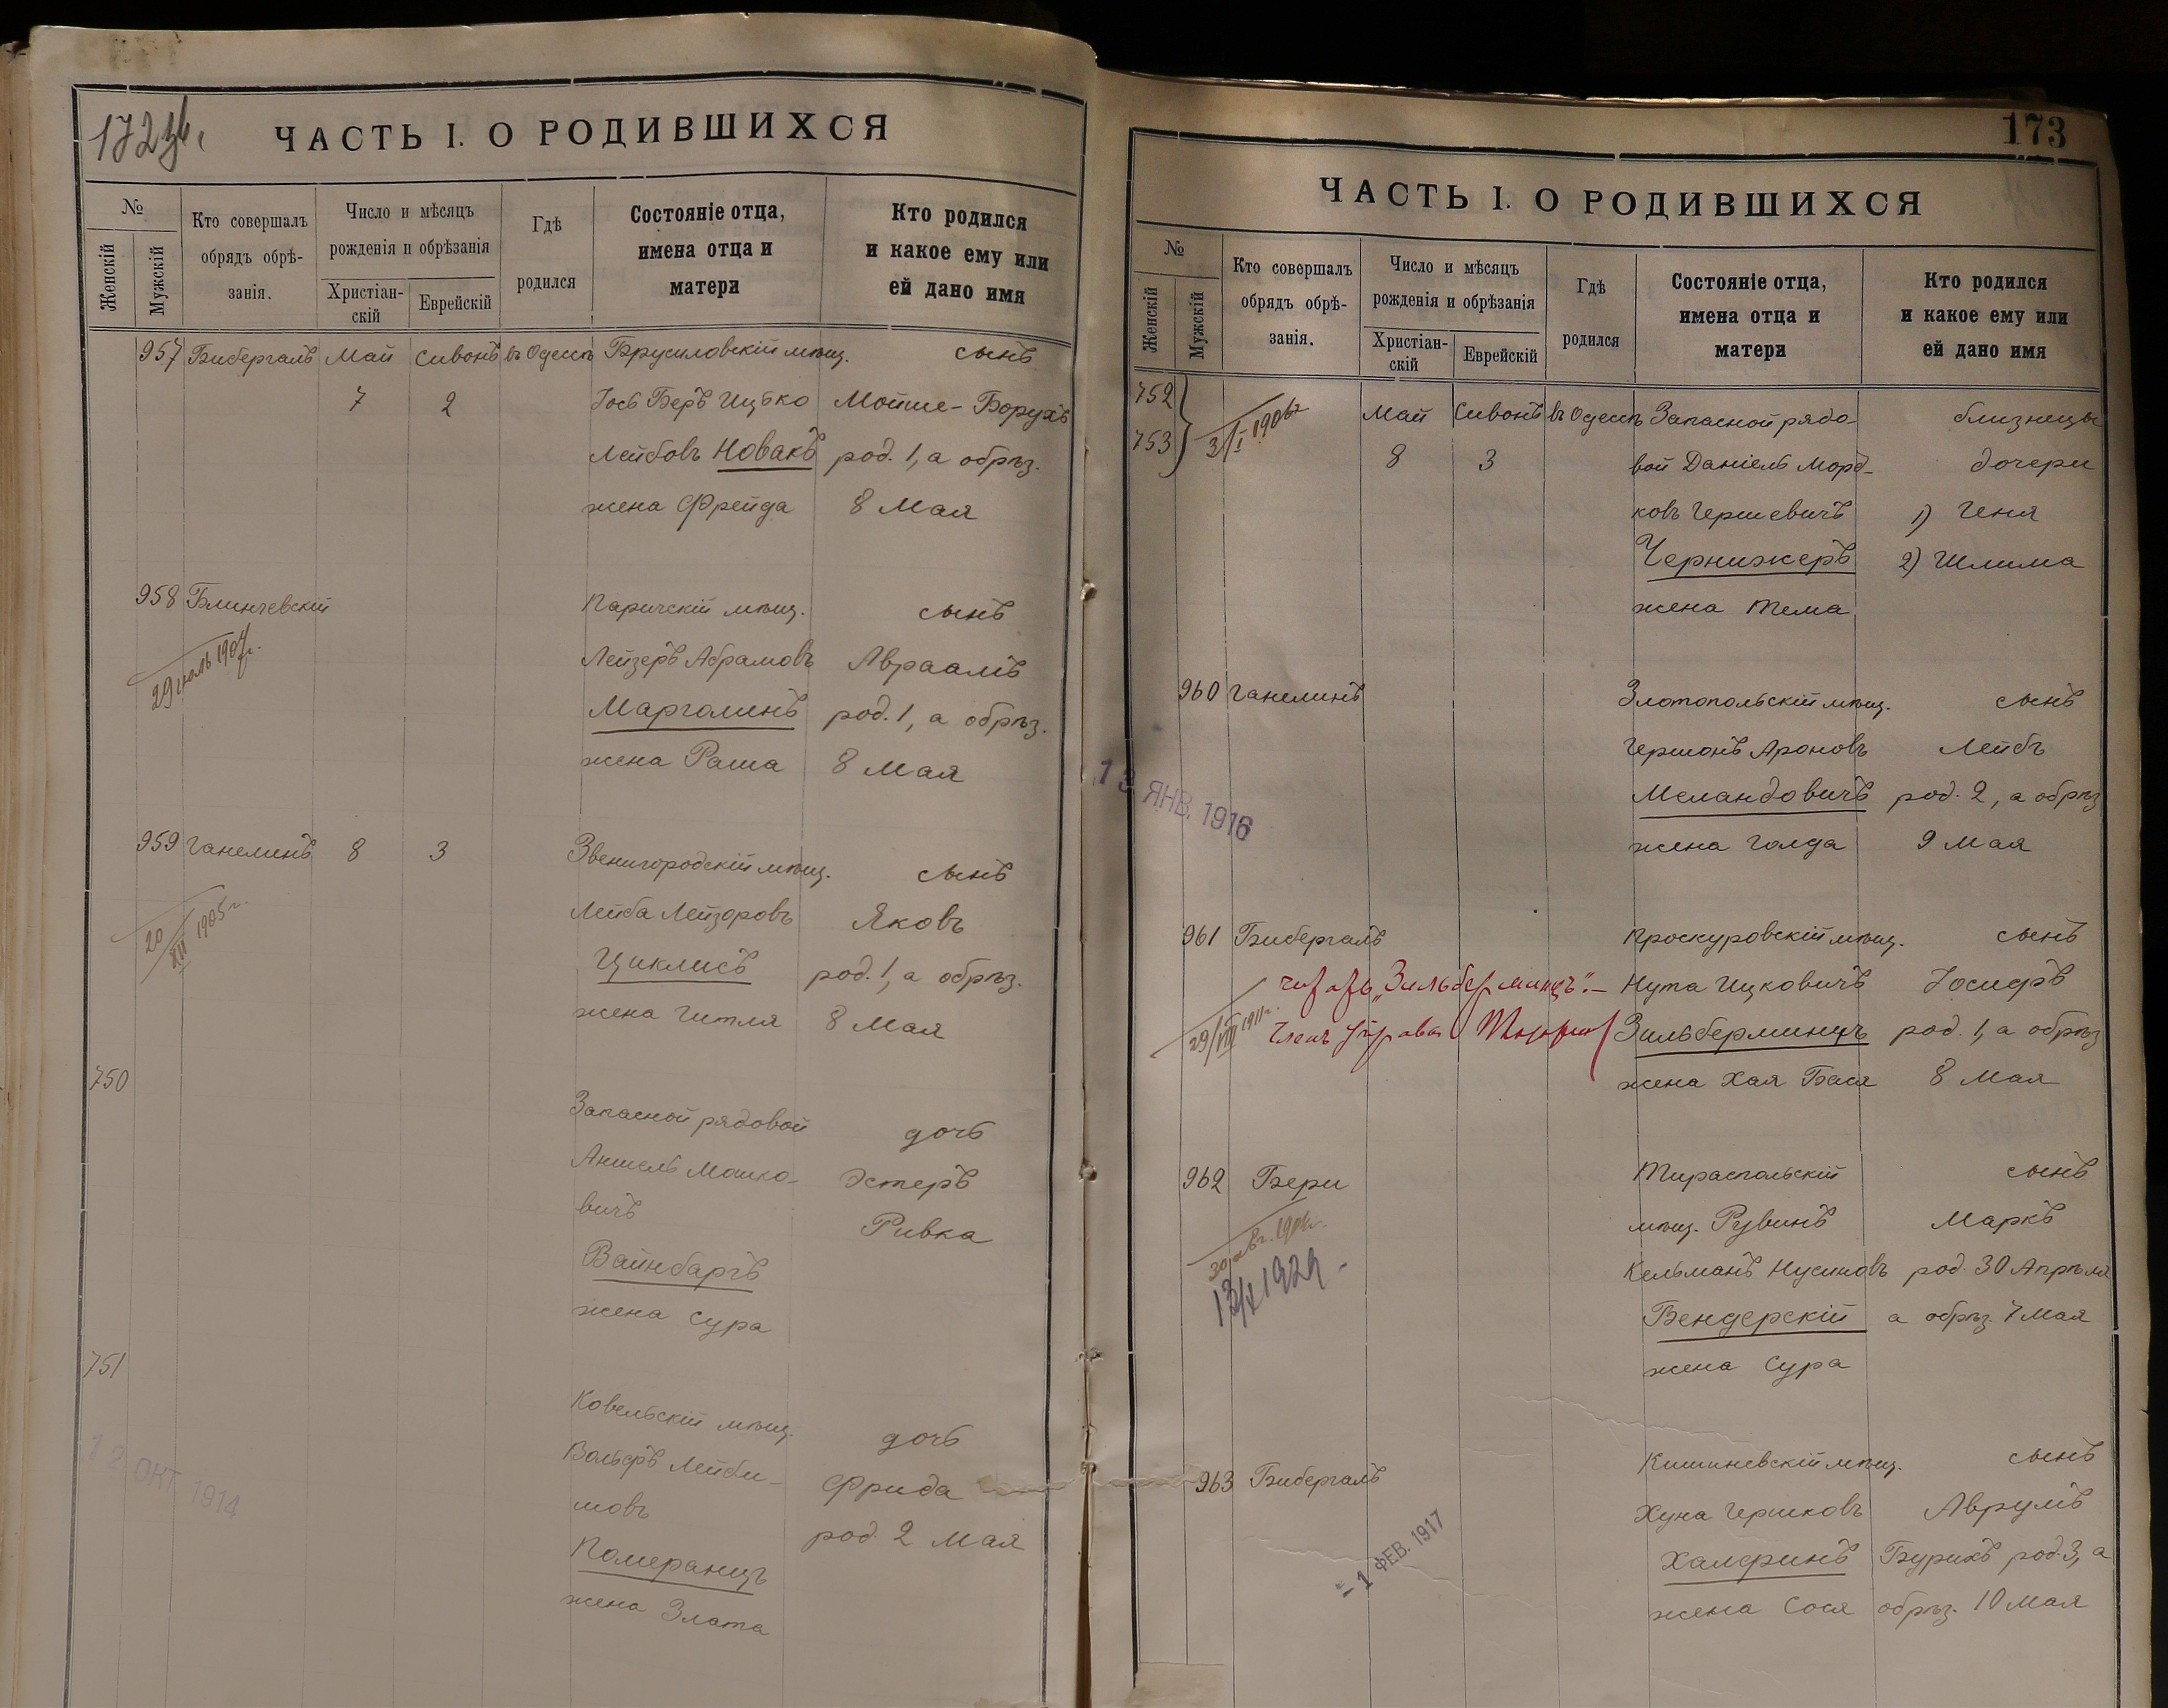 172 об.
ЧАСТЬ I. О РОДИВШИХСЯ
№
Женскій
Мужскій
Кто совершалъ
обрядъ обрѣ-
занія.
Число и мѣсяцъ
рожденія и обрѣзанія
Христіан-
скій
Еврейскій
Гдѣ
родился
Состояніе отца,
имена отца и
матери
Кто родился
и какое ему или
ей дано имя
957 Бибергалъ Май Сивонъ въ Одессѣ Брусиловскій мѣщ. сынъ
7 2 Іось Беръ Ицько Мойше-Борухъ
Лейбовъ Новакъ род. 1, а обрѣз.
жена Фрейда 8 Мая
958 Блинчевскій Паричскій мѣщ. сынъ
29 іюль 1907 г.
Лейзеръ Абрамовъ Авраамъ
Марголинъ род. 1, а обрѣз.
жена Раша 8 Мая
959 Ганелинъ 8 3 Звенигородскій мѣщ. сынъ
20/XII 1905 г.
Лейба Лейзоровъ Яковъ
Циклисъ род. 1, а обрѣз.
жена Гитля 8 Мая
750
Запасной рядовой дочь
Аншель Мошко- Эстеръ
вичъ Ривка
Вайнбаргъ
жена Сура
751
Ковельскій мѣщ. дочь
12 ОКТ 1914
Вольфъ Лейби- Фрида
мовъ род. 2 Мая
Померанцъ
жена Злата
173
ЧАСТЬ I. О РОДИВШИХСЯ
№
Женскій
Мужскій
Кто совершалъ
обрядъ обрѣ-
занія.
Число и мѣсяцъ
рожденія и обрѣзанія
Христіан-
скій
Еврейскій
Гдѣ
родился
Состояніе отца,
имена отца и
матери
Кто родился
и какое ему или
ей дано имя
752 Май Сивонъ въ Одессѣ Запасной рядо- близнецы
753 3/I 1906 г. 8 3 вой Даніель Морд- дочери
ковъ Гершевичъ 1) Геня
Чернижеръ 2) Шлима
жена Тема
960 Ганелинъ Златопольскій мѣщ. сынъ
Гершонъ Ароновъ Лейбъ
13 ЯНВ. 1916
Меландовичъ род. 2, а обрѣз
жена Голда 9 Мая
961 Бибергалъ Проскуровскій мѣщ. сынъ
"Зильберминцъ".— Нута Ицковичъ Іосифъ
29/VII 1911 г. Членъ Управы Зильберминцъ род. 1, а обрѣз
жена Хая Бася 8 Мая
962 Бери Тираспольскій сынъ
30 авг. мѣщ. Рувинъ Маркъ
1929 Кельманъ Нусиновъ род. 30 Апрѣля
Бендерскій а обрѣз. 7 Мая
жена Сура
963 Бибергалъ Кишиневскій мѣщ. сынъ
Хуна Гершковъ Аврумъ
- 1 ФЕВ. 1917
Халфинъ Бурихъ род. 3, а
жена Сося обрѣз. 10 Мая